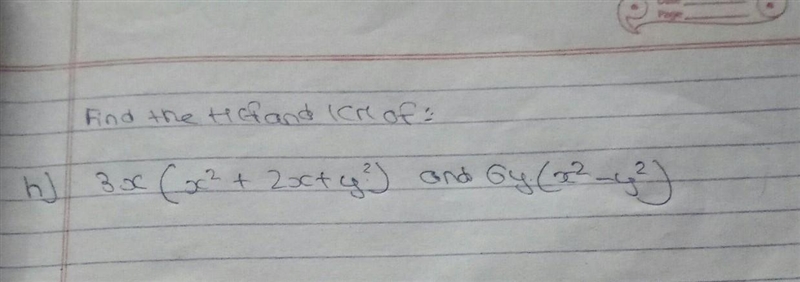 Page
Find the HCf and lCM of :
h) 3x (x² + 2x + y²) and 6y (x² - y²)